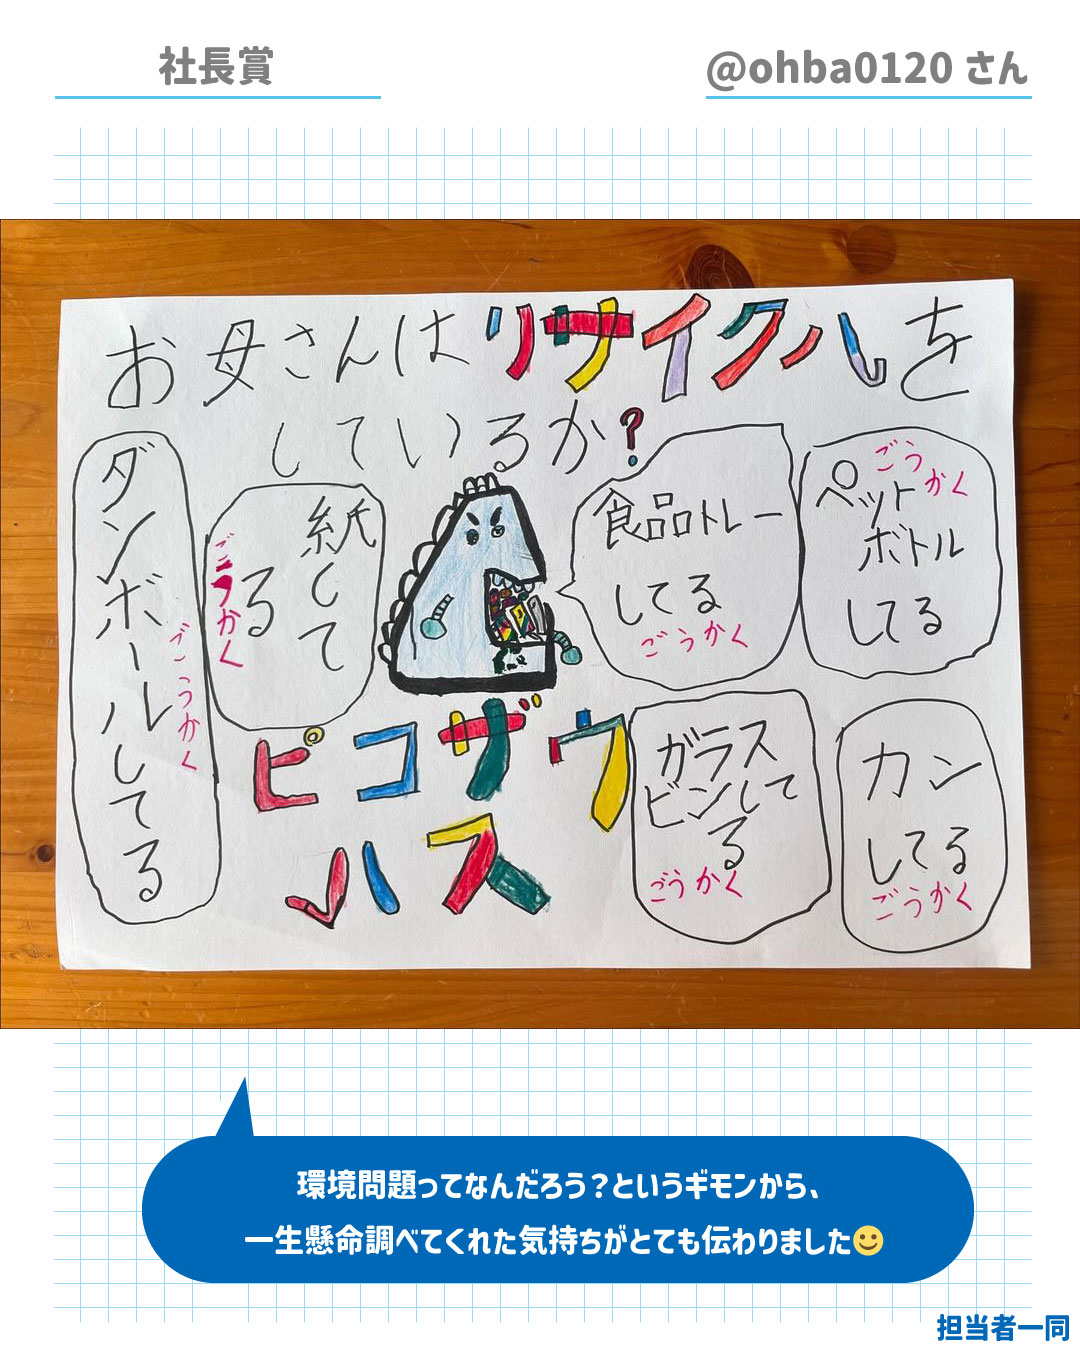 社長賞
@ohba0120 さん
お母さんはリサイクルを
しているか?
ダンボールしてる
ごうかく
紙して
る
ごうかく
食品トレー
してる
ごうかく
ペット
ボトル
してる
ごうかく
ピコザウ
ルス
ガラス
ビンして
る
ごうかく
カン
してる
ごうかく
環境問題ってなんだろう?というギモンから、
一生懸命調べてくれた気持ちがとても伝わりました🙂
担当者一同